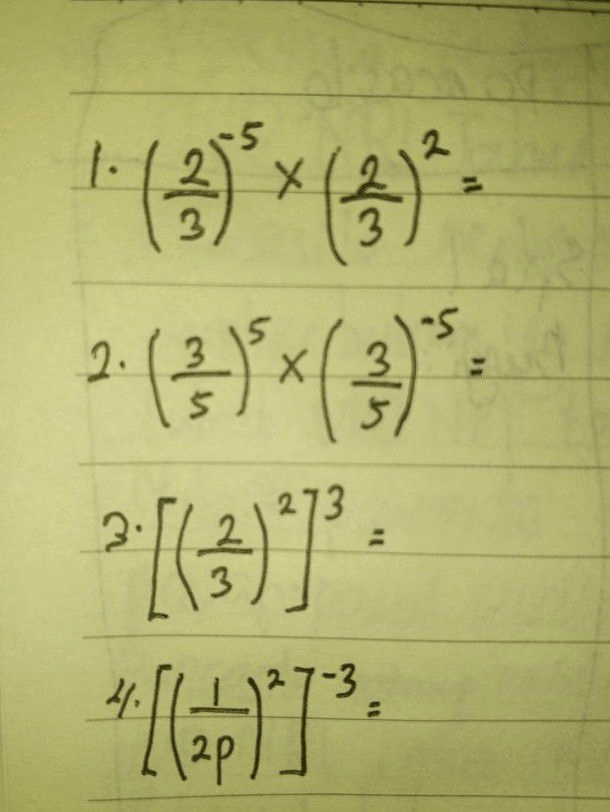 1. (2/3)^-5 × (2/3)^2 =
2. (3/5)^5 × (3/5)^-5 =
3. [(2/3)^2]^3 =
4. [(1/2p)^2]^-3 =